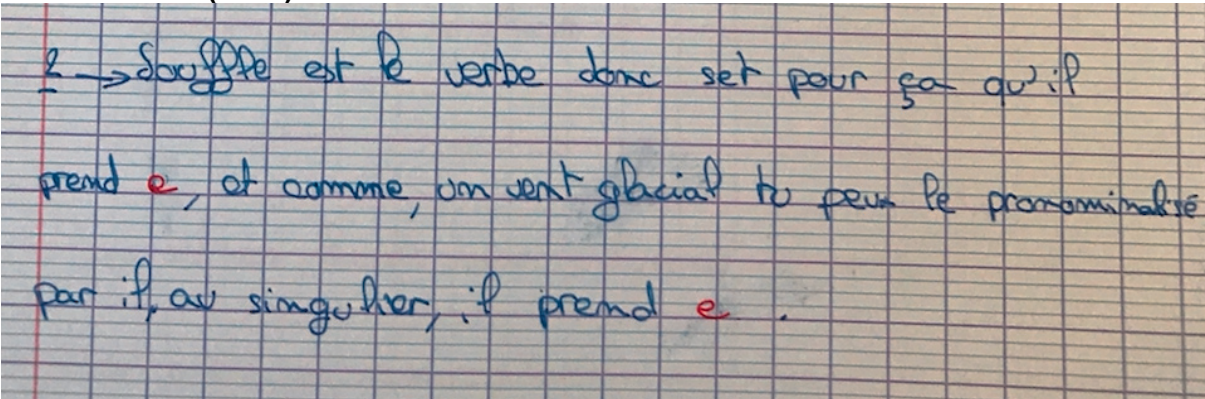 2 → Souffle est le verbe donc set pour ça qu'il
prend e, et comme, un vent glacial tu peux le pronominalisé
par il, au singulier, il prend e .